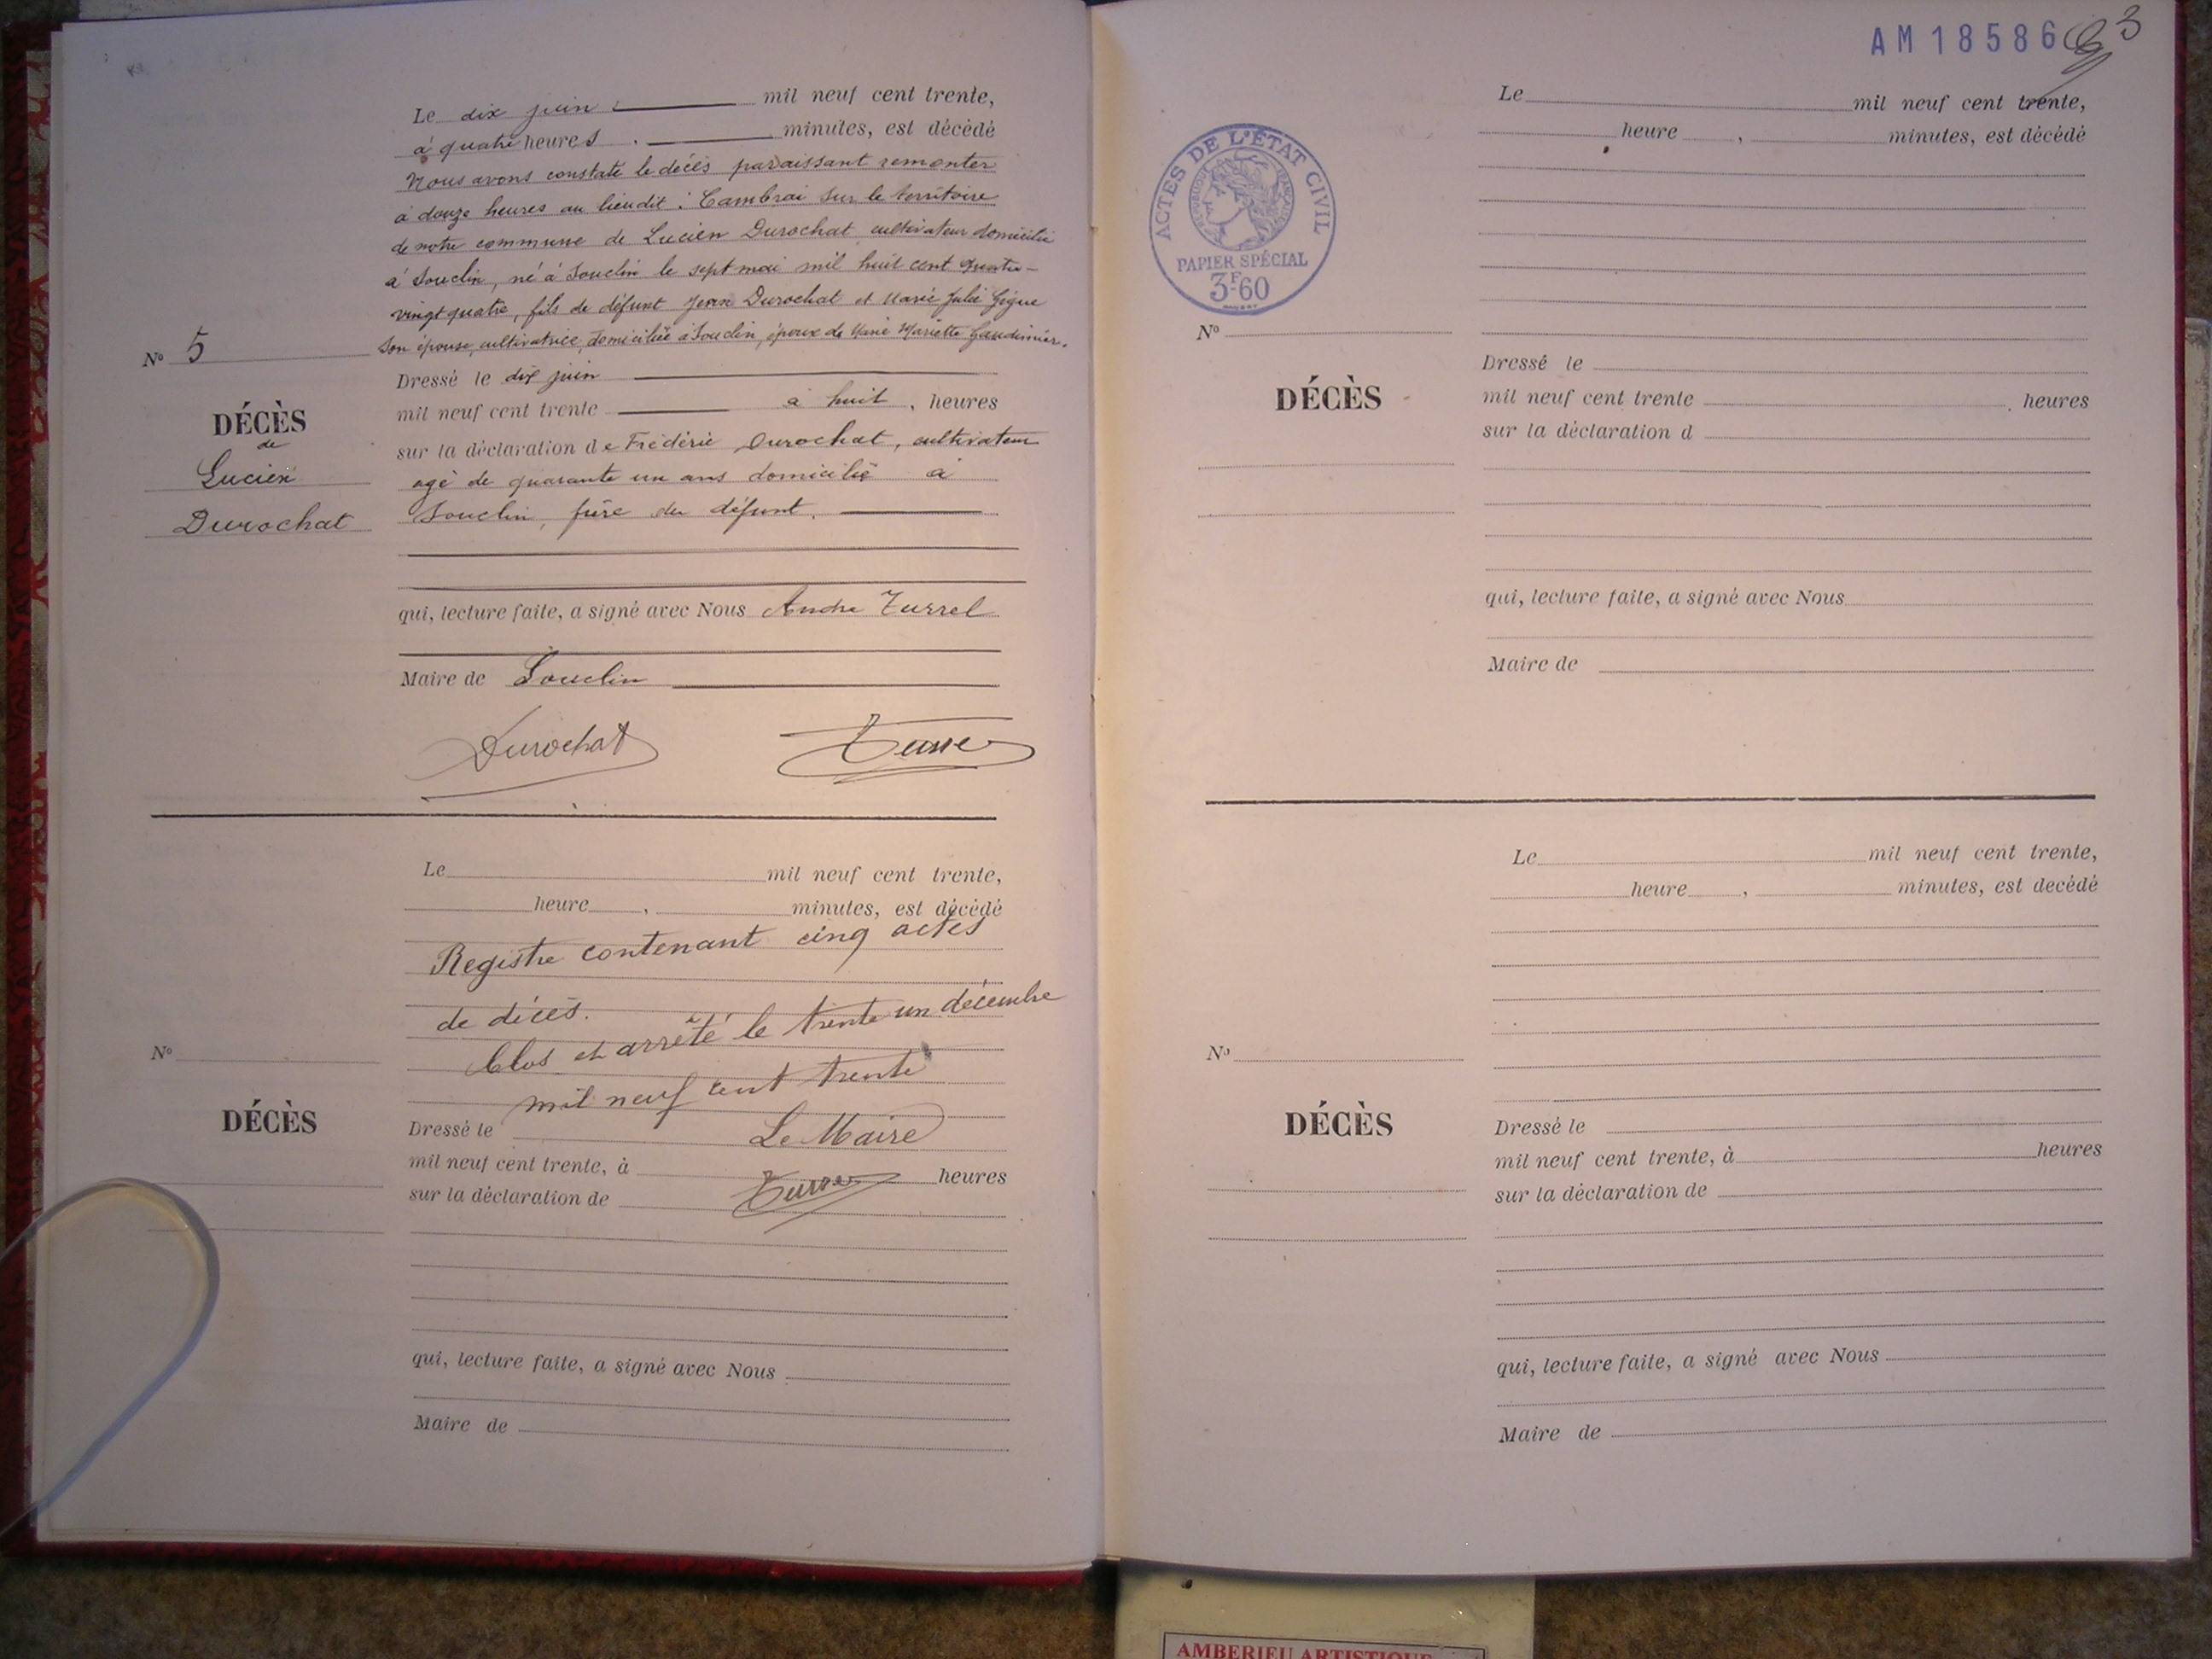 Le dix juin mil neuf cent trente,
à quatre heures . minutes, est décédé
Nous avons constaté le décès paraissant remonter
à douze heures au lieudit : Cambrai sur le territoire
de notre commune de Lucien Durochat cultivateur domicilié
à Souclin, né à Souclin le sept mai mil huit cent quatre-
vingt quatre, fils de défunt Jean Durochat et Marie Julie Gigue
son épouse, cultivatrice, domiciliée à Souclin, époux de Marie Mariette
Nº 5
Dressé le dix juin
mil neuf cent trente à huit, heures
DÉCÈS
de
Lucien
Durochat
sur la déclaration de Frédéric Durochat, cultivateur
agé de quarante un ans domicilié à
Souclin, frère du défunt.
qui, lecture faite, a signé avec Nous Andre Turrel
Maire de Souclin
Durochat
Le mil neuf cent trente,
heure , minutes, est décédé
Registre contenant cinq actes
de décès.
Clos et arrêté le trente un décembre
mil neuf cent trente
Nº
DÉCÈS
Dressé le Le Maire
mil neuf cent trente, à heures
sur la déclaration de
qui, lecture faite, a signé avec Nous
Maire de
AM18586
3
Le mil neuf cent trente,
heure , minutes, est décédé
ACTES DE L'ÉTAT CIVIL
RÉPUBLIQUE FRANÇAISE
PAPIER SPÉCIAL
3F60
Nº
DÉCÈS
Dressé le
mil neuf cent trente , heures
sur la déclaration d
qui, lecture faite, a signé avec Nous
Maire de
Le mil neuf cent trente,
heure , minutes, est decédé
Nº
DÉCÈS
Dressé le
mil neuf cent trente, à heures
sur la déclaration de
qui, lecture faite, a signé avec Nous
Maire de
AMBERIEU ARTISTIQUE